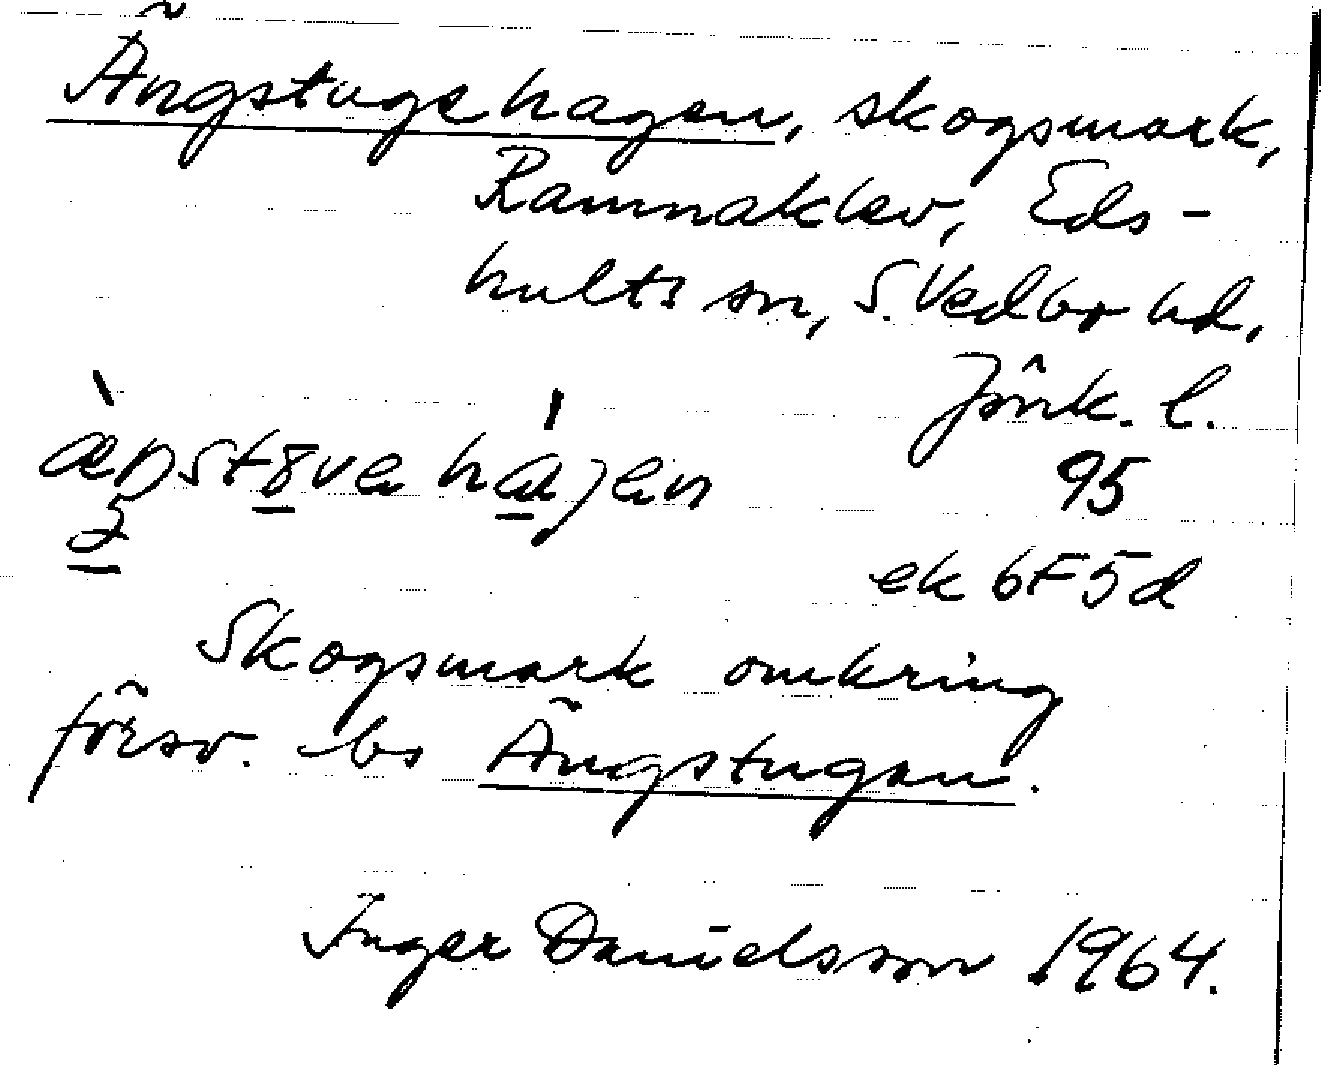 Ängstugehagen, skogsmark,
Ramnaklev, Eds-
hults sn, S. Vedbo hd,
Jönk. l.
95
ek 6F5d
Skogsmark omkring
försv. bs Ängstugan.
Inger Danielsson 1964.